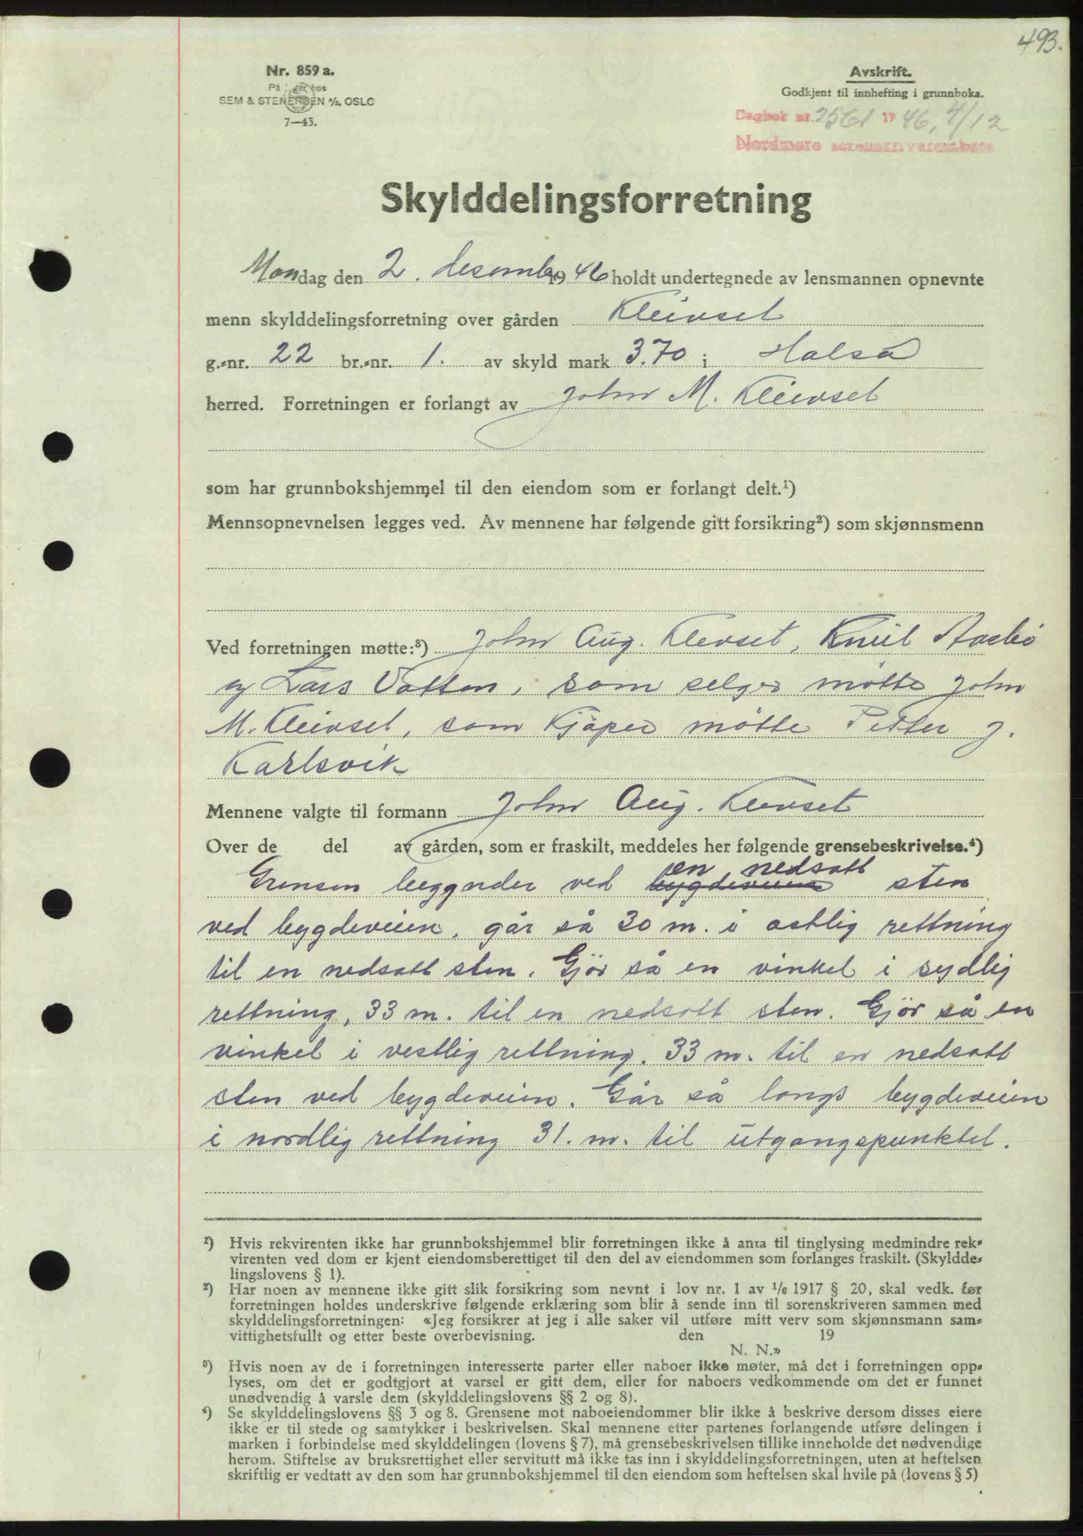 493.
Nr. 859 a.
På lager hos
SEM & STENERSEN A/S, OSLO
7—43.
Avskrift.
Godkjent til innhefting i grunnboka.
Dagbok nr. 2561 1946, 4/12
Nordmøre sorenskriverembete
Skylddelingsforretning
Mondag den 2. desemb 1946 holdt undertegnede av lensmannen opnevnte
menn skylddelingsforretning over gården Kleivset
g.-nr. 22 br.-nr. 1. av skyld mark 3.70 i Halsa
herred. Forretningen er forlangt av John M. Kleivset
som har grunnbokshjemmel til den eiendom som er forlangt delt.¹)
Mennsopnevnelsen legges ved. Av mennene har følgende gitt forsikring²) som skjønnsmenn
Ved forretningen møtte:³) John Aug. Klevset, Knut Aasbö
og Lars Vatten, som selger mötte John
M. Kleivset, som Kjöper mötte Petter J.
Karlsvik
Mennene valgte til formann John Aug. Klevset
Over de del av gården, som er fraskilt, meddeles her følgende grensebeskrivelse.⁴)
Grensen beggynder ved bygdeveien en nedsatt sten
ved bygdeveien. går så 30 m. i ostlig rettning
til en nedsatt sten. Gjör så en vinkel i sydlig
rettning, 33 m. til en nedsatt sten. Gjör så en
vinkel i vestlig rettning. 33 m. til en nedsatt
sten ved bygdeveien. Går så langs bygdeveien
i nordlig rettning 31. m. til utgangspunktet.
¹) Hvis rekvirenten ikke har grunnbokshjemmel blir forretningen ikke å anta til tinglysing medmindre rek-
virenten ved dom er kjent eiendomsberettiget til den del av eiendommen som forlanges fraskilt. (Skyldde-
lingslovens § 1).
²) Har noen av mennene ikke gitt slik forsikring som nevnt i lov nr. 1 av 1/6 1917 § 20, skal vedk. før
forretningen holdes underskrive følgende erklæring som blir å sende inn til sorenskriveren sammen med
skylddelingsforretningen: «Jeg forsikrer at jeg i alle saker vil utføre mitt verv som skjønnsmann sam-
vittighetsfullt og etter beste overbevisning. den 19
N. N.»
³) Hvis noen av de i forretningen interesserte parter eller naboer ikke møter, må det i forretningen opp-
lyses, om det er godtgjort at varsel er gitt dem, eller for naboers vedkommende om det er funnet
unødvendig å varsle dem (skylddelingslovens §§ 2 og 8).
⁴) Se skylddelingslovens §§ 3 og 8. Grensene mot naboeiendommer blir ikke å beskrive dersom disses eiere
ikke er til stede og samtykker i beskrivelsen. Skal mennene etter partenes forlangende utføre delingen i
marken i forbindelse med skylddelingen (lovens § 7), må grensebeskrivelsen tillike inneholde det nødvendige
herom. Stiftelse av bruksrettighet eller servitutt må ikke tas inn i skylddelingsforretningen, uten at heftelsen
skriftlig er vedtatt av den som har grunnbokshjemmel til den eiendom som heftelsen skal hvile på (lovens § 5)